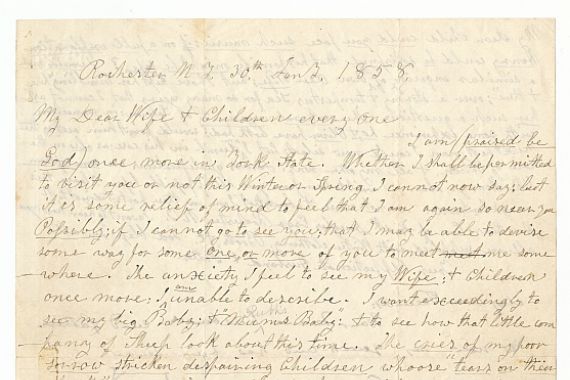 Rochester N Y, 30th Jany, 1858.
My Dear Wife & Children every one
I am (praised be
God) once more in York State. Whether I shall be permitted
to visit you or not this Winter or Spring I cannot now say; but
it is some relief of mind to feel that I am again so near you
Possibly; if I cannot go to see you; that I may be able to devise
some way for some one or more of you to meet me some
where. The anxiety I feel to see my Wife; & Children
once more; I am unable to describe. I want exceedingly to
see my big Baby; & Ruths Baby; & to see how that little com
pany of Sheep look about this time. The cries of my poor
sorrow stricken despairing Children whoose "tears on their